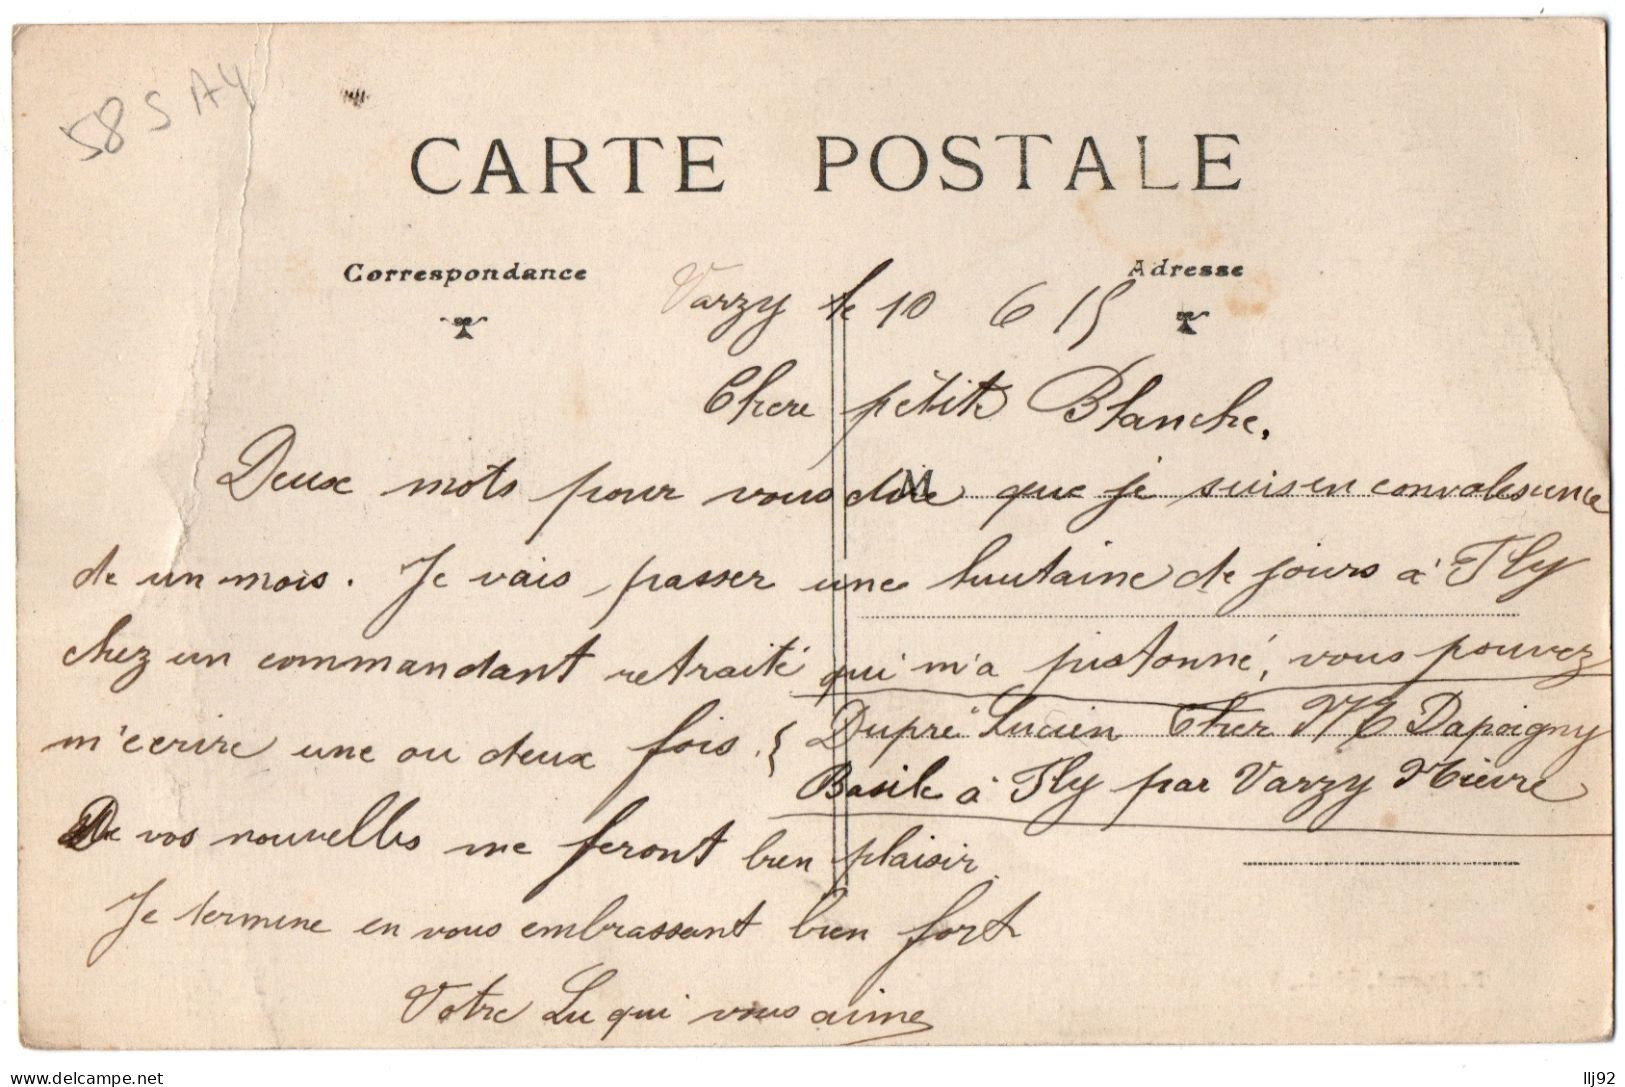 58 S A4
CARTE POSTALE
Correspondance
Adresse
Varzy le 10 6 15
Chere pétite Blanche.
Deux mots pour vous dire que je suis en convalesence
M
de un mois. Je vais passer une huitaine de jours à Fly
chez un commandant retraité qui m'a pistonné, vous pouvez
m'ecrire une ou deux fois. { Dupré Lucien Cher Mr Dapoigny
Basile à Fly par Varzy Nièvre
De vos nouvelles me feront bien plaisir.
Je termine en vous embrassant bien fort
Votre Lu qui vous aime
delcampe.net
llj92